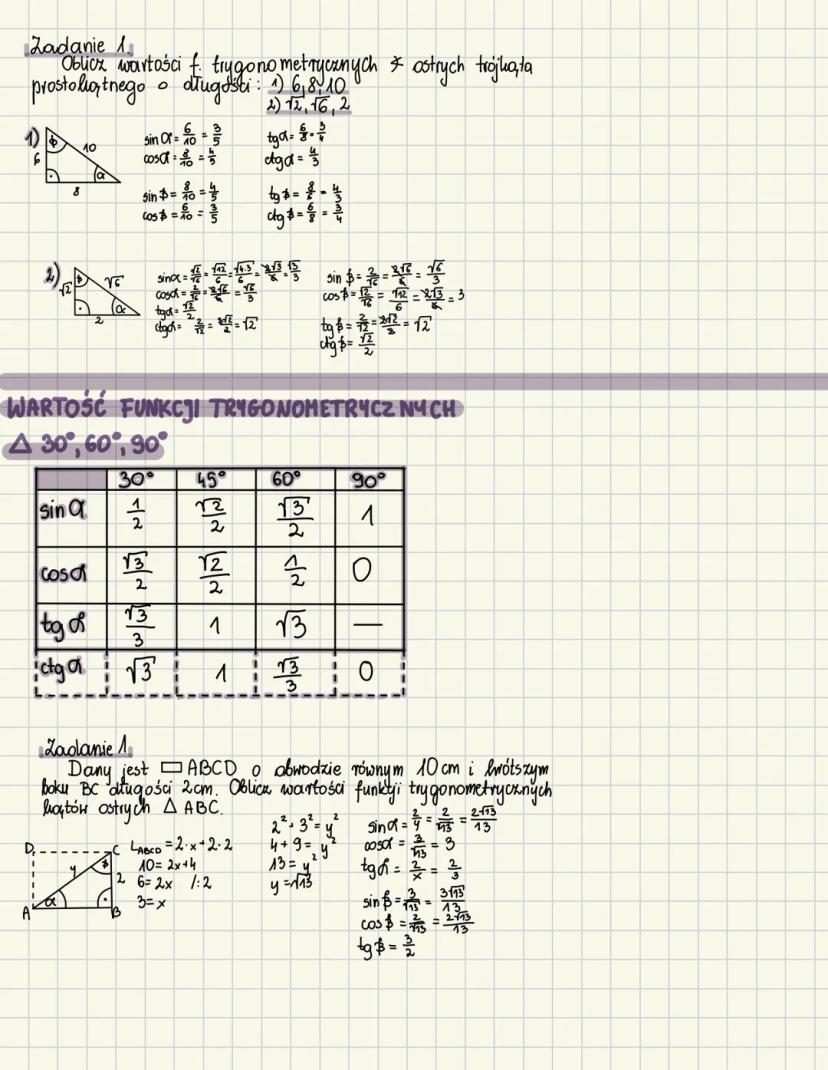 Zadanie 1.
Oblicz wartości f. trygonometrycznych ∢ ostrych trójkąta
prostokątnego o długości: 1) 6,8,10
2) √2, √6, 2
1) 6 10 8 β α
sin α = 6/10 = 3/5 tg α = 6/8 = 3/4
cos α = 8/10 = 4/5 ctg α = 4/3
sin β = 8/10 = 4/5 tg β = 8/6 = 4/3
cos β = 6/10 = 3/5 ctg β = 6/8 = 3/4
2) √2 √6 2 β α
sin α = √2/√6 = √12/6 = √4·3/6 = 2√3/6 = √3/3 sin β = 2/√6 = 2√6/6 = √6/3
cos α = 2/√6 = 2√6/6 = √6/3 cos β = √2/√6 = √12/6 = 2√3/6 = 3
tg α = √2/2 tg β = 2/√2 = 2√2/2 = √2
ctg α = 2/√2 = 2√2/2 = √2 ctg β = √2/2
WARTOŚĆ FUNKCJI TRYGONOMETRYCZNYCH
△ 30°, 60°, 90°
30° 45° 60° 90°
sin α 1/2 √2/2 √3/2 1
cos α √3/2 √2/2 1/2 0
tg α √3/3 1 √3 —
ctg α √3 1 √3/3 0
Zadanie 1.
Dany jest ▭ ABCD o obwodzie równym 10 cm i krótszym
boku BC długości 2cm. Oblicz wartości funkcji trygonometrycznych
kątów ostrych △ ABC.
D C A B y 2 α β
L ABCD = 2·x + 2·2
10 = 2x+4
6 = 2x /:2
3 = x
2² + 3² = y²
4 + 9 = y²
13 = y²
y = √13
sin α = 2/y = 2/√13 = 2√13/13
cos α = 3/√13 = 3
tg α = 2/x = 2/3
sin β = 3/√13 = 3√13/13
cos β = 2/√13 = 2√13/13
tg β = 3/2